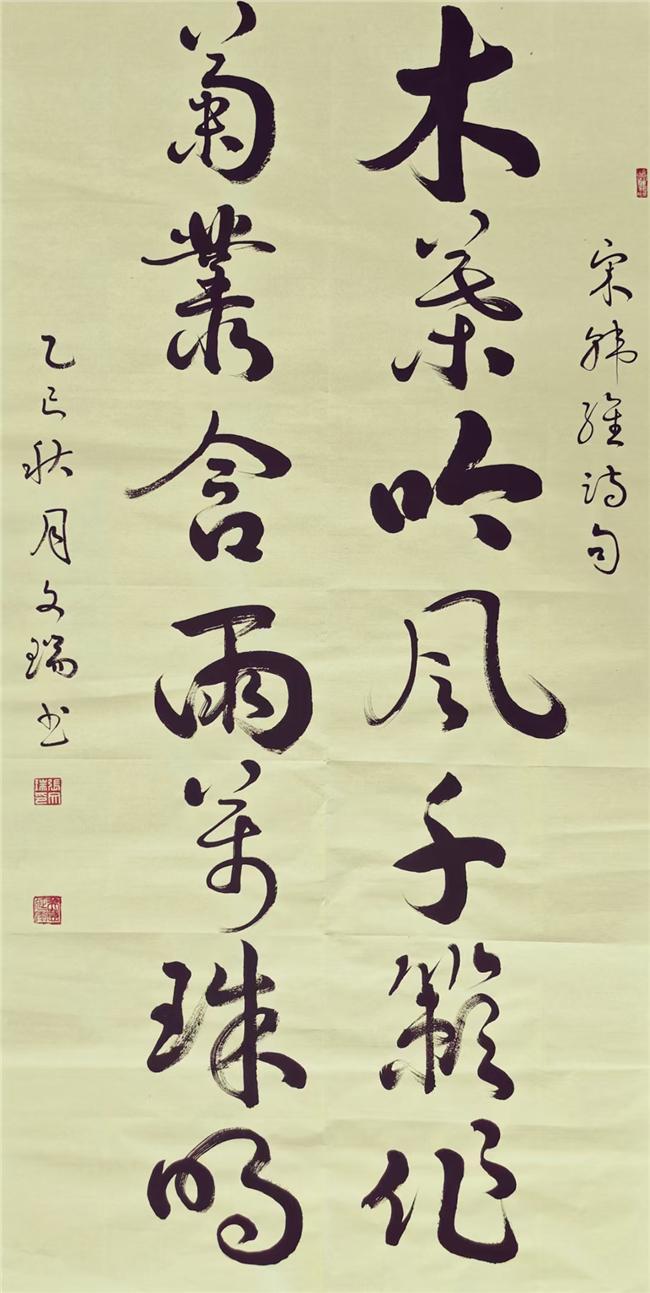 宋韩维诗句
木叶吟风千籁作
菊丛含雨万珠明
乙巳秋月文瑞书